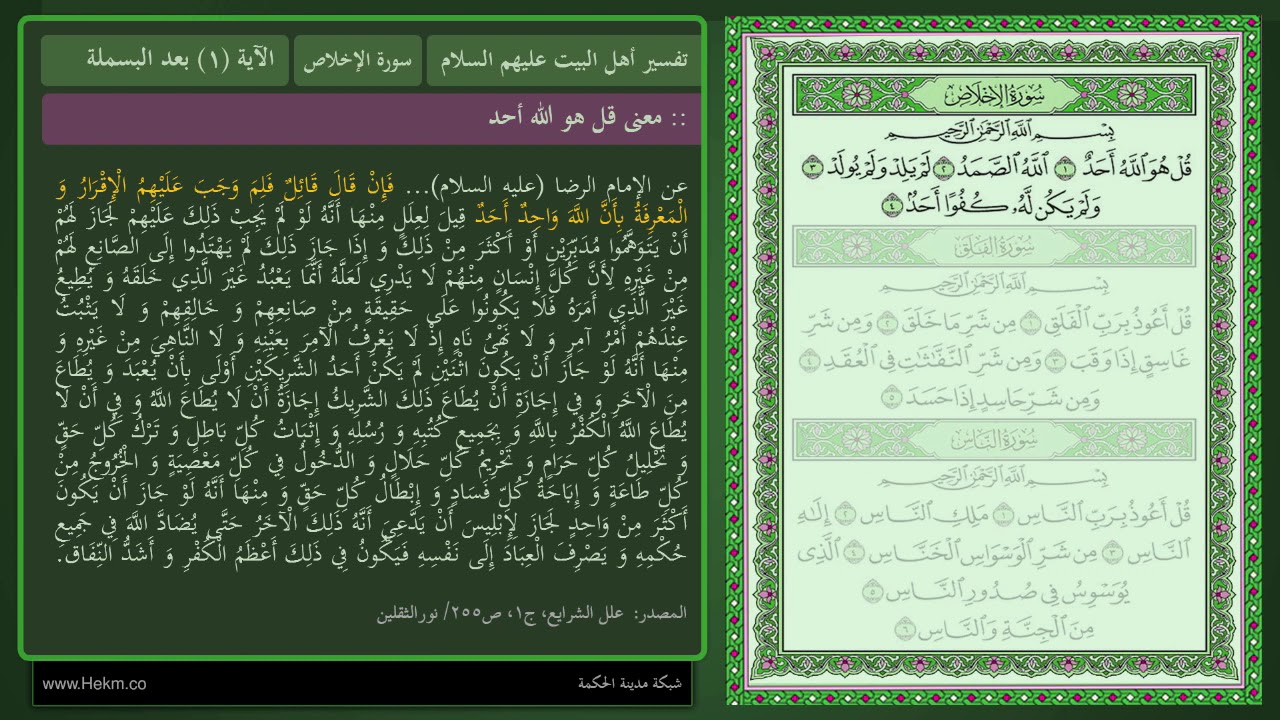 تفسير أهل البيت عليهم السلام
سورة الإخلاص
الآية (١) بعد البسملة
:: معنى قل هو الله أحد
عن الإمام الرضا (عليه السلام)... فَإِنْ قَالَ قَائِلٌ فَلِمَ وَجَبَ عَلَيْهِمُ الْإِقْرَارُ وَ
الْمَعْرِفَةُ بِأَنَّ اللهَ وَاحِدٌ أَحَدٌ قِيلَ لِعِلَلٍ مِنْهَا أَنَّهُ لَوْ لَمْ يَجِبْ ذَلِكَ عَلَيْهِمْ لَجَازَ لَهُمْ
أَنْ يَتَوَهَّمُوا مُدَبِّرَيْنِ أَوْ أَكْثَرَ مِنْ ذَلِكَ وَ إِذَا جَازَ ذَلِكَ لَمْ يَهْتَدُوا إِلَى الصَّانِعِ لَهُمْ
مِنْ غَيْرِهِ لِأَنَّ كُلَّ إِنْسَانٍ مِنْهُمْ لَا يَدْرِي لَعَلَّهُ أَنَّمَا يَعْبُدُ غَيْرَ الَّذِي خَلَقَهُ وَ يُطِيعُ
غَيْرَ الَّذِي أَمَرَهُ فَلَا يَكُونُوا عَلَى حَقِيقَةٍ مِنْ صَانِعِهِمْ وَ خَالِقِهِمْ وَ لَا يَثْبُتُ
عِنْدَهُمْ أَمْرُ آمِرٍ وَ لَا نَهْىُ نَاهٍ إِذْ لَا يَعْرِفُ الْآمِرَ بِعَيْنِهِ وَ لَا النَّاهِيَ مِنْ غَيْرِهِ وَ
مِنْهَا أَنَّهُ لَوْ جَازَ أَنْ يَكُونَ اثْنَيْنِ لَمْ يَكُنْ أَحَدُ الشَّرِيكَيْنِ أَوْلَى بِأَنْ يُعْبَدَ وَ يُطَاعَ
مِنَ الْآخَرِ وَ فِي إِجَازَةِ أَنْ يُطَاعَ ذَلِكَ الشَّرِيكُ إِجَازَةُ أَنْ لَا يُطَاعَ اللهُ وَ فِي أَنْ لَا
يُطَاعَ اللهُ الْكُفْرُ بِاللهِ وَ بِجَمِيعِ كُتُبِهِ وَ رُسُلِهِ وَ إِثْبَاتُ كُلِّ بَاطِلٍ وَ تَرْكُ كُلِّ حَقٍّ
وَ تَحْلِيلُ كُلِّ حَرَامٍ وَ تَحْرِيمُ كُلِّ حَلَالٍ وَ الدُّخُولُ فِي كُلِّ مَعْصِيَةٍ وَ الْخُرُوجُ مِنْ
كُلِّ طَاعَةٍ وَ إِبَاحَةُ كُلِّ فَسَادٍ وَ إِبْطَالُ كُلِّ حَقٍّ وَ مِنْهَا أَنَّهُ لَوْ جَازَ أَنْ يَكُونَ
أَكْثَرَ مِنْ وَاحِدٍ لَجَازَ لِإِبْلِيسَ أَنْ يَدَّعِيَ أَنَّهُ ذَلِكَ الْآخَرُ حَتَّى يُضَادَّ اللهَ فِي جَمِيعِ
حُكْمِهِ وَ يَصْرِفَ الْعِبَادَ إِلَى نَفْسِهِ فَيَكُونُ فِي ذَلِكَ أَعْظَمُ الْكُفْرِ وَ أَشَدُّ النِّفَاقِ.
المصدر: علل الشرايع، ج١، ص٢٥٥/ نورالثقلين
شبكة مدينة الحكمة
www.Hekm.co
سُورَةُ الإِخْلَاصِ
بِسْمِ ٱللَّهِ ٱلرَّحْمَٰنِ ٱلرَّحِيمِ
قُلْ هُوَ ٱللَّهُ أَحَدٌ ١ ٱللَّهُ ٱلصَّمَدُ ٢ لَمْ يَلِدْ وَلَمْ يُولَدْ ٣
وَلَمْ يَكُن لَّهُۥ كُفُوًا أَحَدٌۢ ٤
سُورَةُ الفَلَقِ
بِسْمِ ٱللَّهِ ٱلرَّحْمَٰنِ ٱلرَّحِيمِ
قُلْ أَعُوذُ بِرَبِّ ٱلْفَلَقِ ١ مِن شَرِّ مَا خَلَقَ ٢ وَمِن شَرِّ
غَاسِقٍ إِذَا وَقَبَ ٣ وَمِن شَرِّ ٱلنَّفَّٰثَٰتِ فِى ٱلْعُقَدِ ٤
وَمِن شَرِّ حَاسِدٍ إِذَا حَسَدَ ٥
سُورَةُ النَّاسِ
بِسْمِ ٱللَّهِ ٱلرَّحْمَٰنِ ٱلرَّحِيمِ
قُلْ أَعُوذُ بِرَبِّ ٱلنَّاسِ ١ مَلِكِ ٱلنَّاسِ ٢ إِلَٰهِ
ٱلنَّاسِ ٣ مِن شَرِّ ٱلْوَسْوَاسِ ٱلْخَنَّاسِ ٤ ٱلَّذِى
يُوَسْوِسُ فِى صُدُورِ ٱلنَّاسِ ٥
مِنَ ٱلْجِنَّةِ وَٱلنَّاسِ ٦